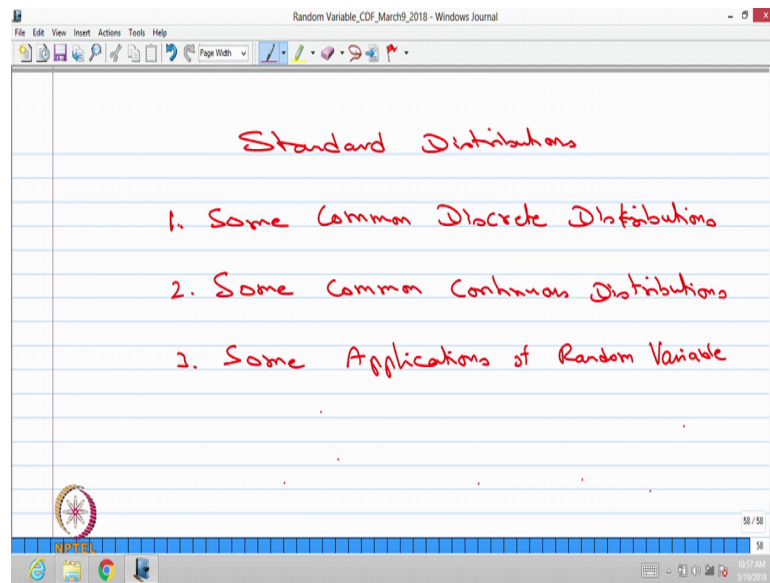 Random Variable_CDF_March9_2018 - Windows Journal
File Edit View Insert Actions Tools Help
Page Width
Standard Distributions
1. Some Common Discrete Distributions
2. Some Common Continuous Distributions
3. Some Applications of Random Variable
58 / 58
NPTEL
58
10:57 AM
3/19/2018